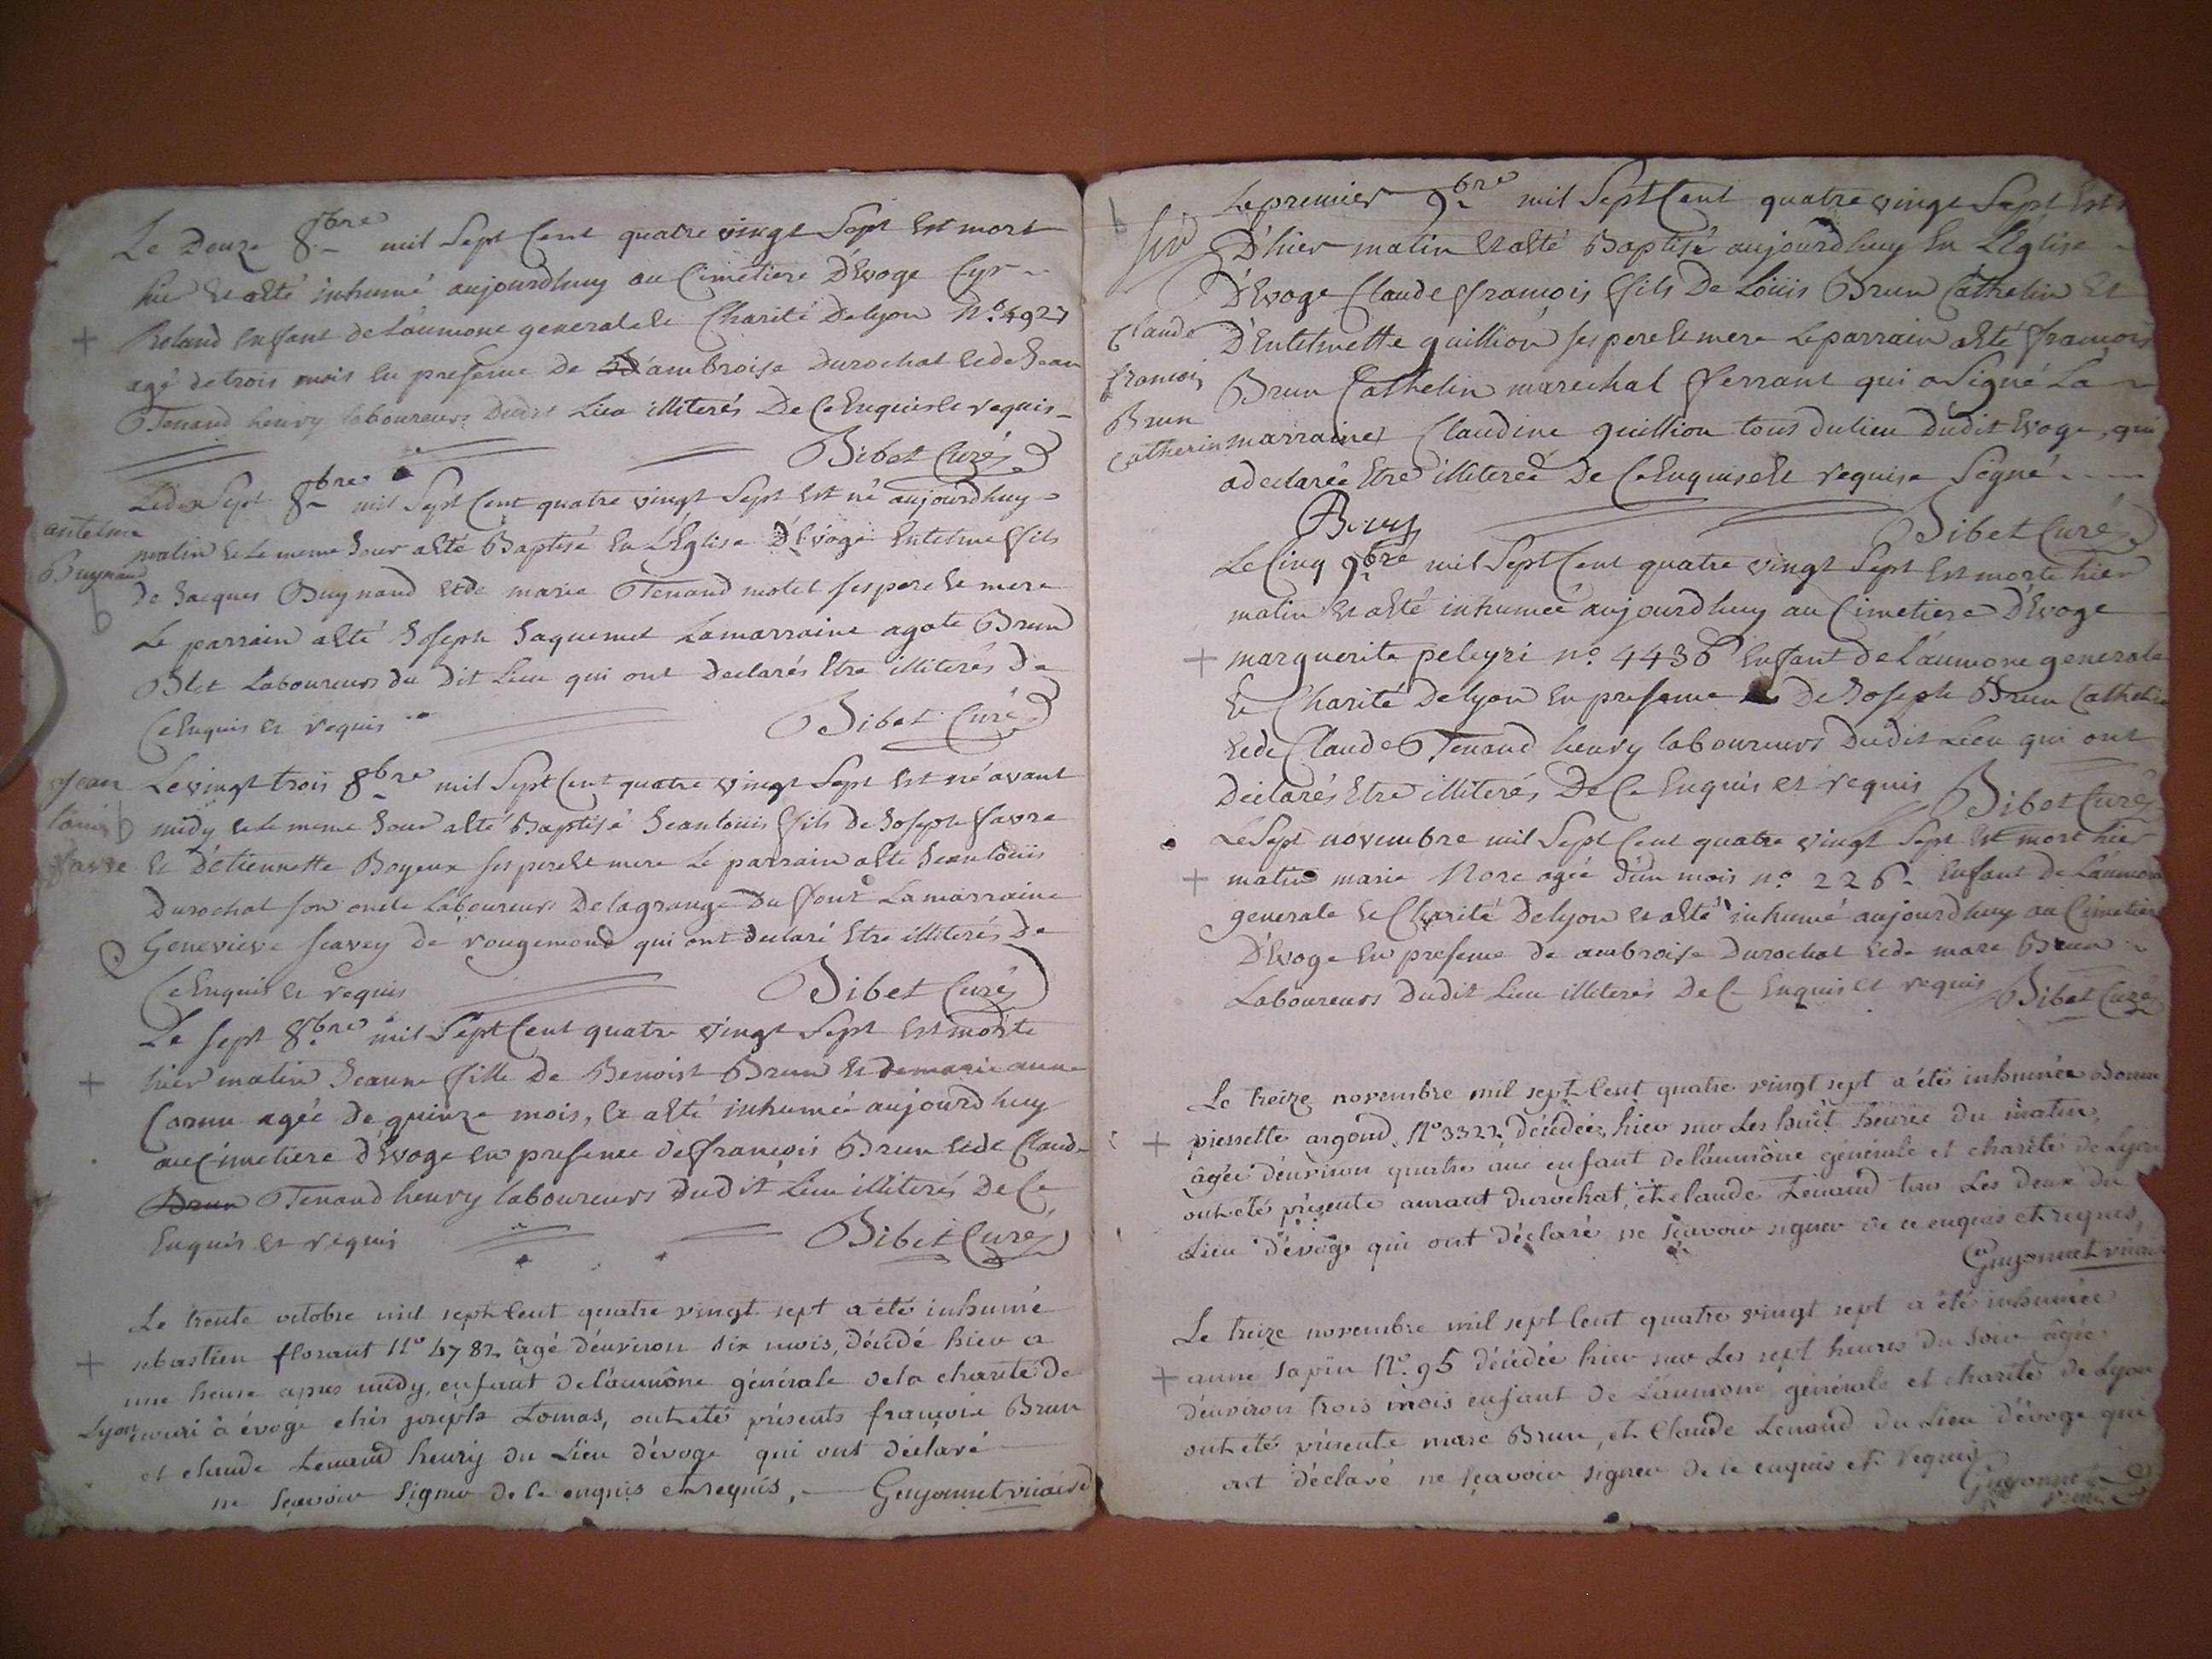 Le Douze 8bre mil Sept Cent quatre vingt Sept Est mort
hier Et aEté inhumé aujourdhuy au Cimetiere D'Evoge Cyr
+ Roland Enfant de L'aumone generale Et Charité De lyon N.o 4927
agé de trois mois En presence De d'ambroise Durochat Et de Jean
Tenand henry laboureurs Dudit Lieu illiterés De Ce Enquis Et requis
Bibet Curé
Le dix Sept 8bre mil Sept Cent quatre vingt Sept Est né aujourdhuy
antelme
matin Et Le meme Jour aEté Baptisé En L'Eglise D'Evoge Entelme ffils
Buynand
De Jacques Buynand Et de marie Tenand motet ses pere Et mere
b
Le parrain aEté Joseph Jaquemet La marraine agate Brun
Blet Laboureurs du Dit Lieu qui ont Declarés Etre illiterés De
Ce Enquis Et requis
Bibet Curé
Jean
Le vingt trois 8bre mil Sept Cent quatre vingt Sept Est né avant
Louis b
midy Et Le meme Jour aEté Baptisé Jean Louis ffils De Joseph favre
favre
Et D'Etiennette Boyeux ses pere Et mere Le parrain aEté Jean Louis
Durochat son oncle Laboureurs De la grange Du four La marraine
Genevieve Jeavey de rougemond qui ont Declaré Etre illiterés De
Ce Enquis Et requis
Bibet Curé
Le sept 8bre mil Sept Cent quatre vingt Sept Est morte
+ hier matin Jeanne ffille De Benoist Brun Et De marie anne
Cornu agée De quinze mois, Et aEté inhumée aujourdhuy
au Cimetiere d'Evoge En presence de ffrançois Brun Et de Claude
Brun Tenand henry laboureurs Dudit Lieu illiterés De Ce
Enquis Et requis
Bibet Curé
Le trente octobre mil sept Cent quatre vingt sept a été inhumé
+ sebastien florant N° 4782 âgé d'environ six mois, décédé hier a
une heure apres midy, enfant de l'aumône générale de la charité de
Lyon nouri à évoge chés joseph Lomas, ont été présents françois Brun
et claude Tenand henry du Lieu d'évoge qui ont déclaré
ne sçavoir signer de Ce enquis et requis, Guyonnet vicaire
b
Le premier 9bre mil Sept Cent quatre vingt Sept Est
D'hier matin Et aEté Baptisé aujourdhuy En L'Eglise
D'Evoge Claude ffrançois ffils De Loüis Brun Cathelin Et
Claude
D'Entelmette guillion ses pere Et mere Le parrain aEté françois
francois
Brun Cathelin marechal fferrant qui a Signé La
Brun
Catherin
marraine Claudine guillion tous du lieu Dudit Evoge, qui
a declarée Etre illiterée De Ce Enquise Et requise Segné
Brun
Bibet Curé
Le Cinq 9bre mil Sept Cent quatre vingt Sept Est morte hier
matin Et aEté inhumée aujourdhuy au Cimetiere D'Evoge
+ marguerite peleyri n.o 4436 Enfant de L'aumone generale
Et Charité De lyon En presence De Joseph Brun Cathelin
Et de Claude Tenand henry laboureurs Dudit Lieu qui ont
Declarés Etre illiterés De Ce Enquis et requis Bibet Curé
Le Sept novembre mil Sept Cent quatre vingt Sept Est mort hier
+ matin marie Nore agée d'un mois n.o 226 Enfant De L'aumone
generale Et Charité De lyon Et aEté inhumé aujourdhuy au Cimetiere
D'Evoge En presence de ambroise Durochat Et de marc Brun
Laboureurs Dudit Lieu illiterés De Ce Enquis Et requis Bibet Curé
Le treize novembre mil sept Cent quatre vingt sept a été inhumée
+ pierrette argoud, N° 3322, décédée, hier sur Les huit heures du matin,
âgée d'environ quatre ans enfant de l'aumône générale et charité de Lyon
ont été présents Durochat, et claude Tenand tous Les deux du
Lieu d'évoge qui ont déclaré ne sçavoir signer de ce enquis et requis,
Guyonnet vicaire
Le treize novembre mil sept Cent quatre vingt sept a été inhumée
+ anne sapin N° 95 décédée hier sur Les sept heures du soir âgée
d'environ trois mois enfant de L'aumone générale et charité de Lyon
ont été présents marc Brun, et Claude Tenand du Lieu d'évoge qui
ont déclaré ne sçavoir signer de Ce enquis et requis
Guyonnet